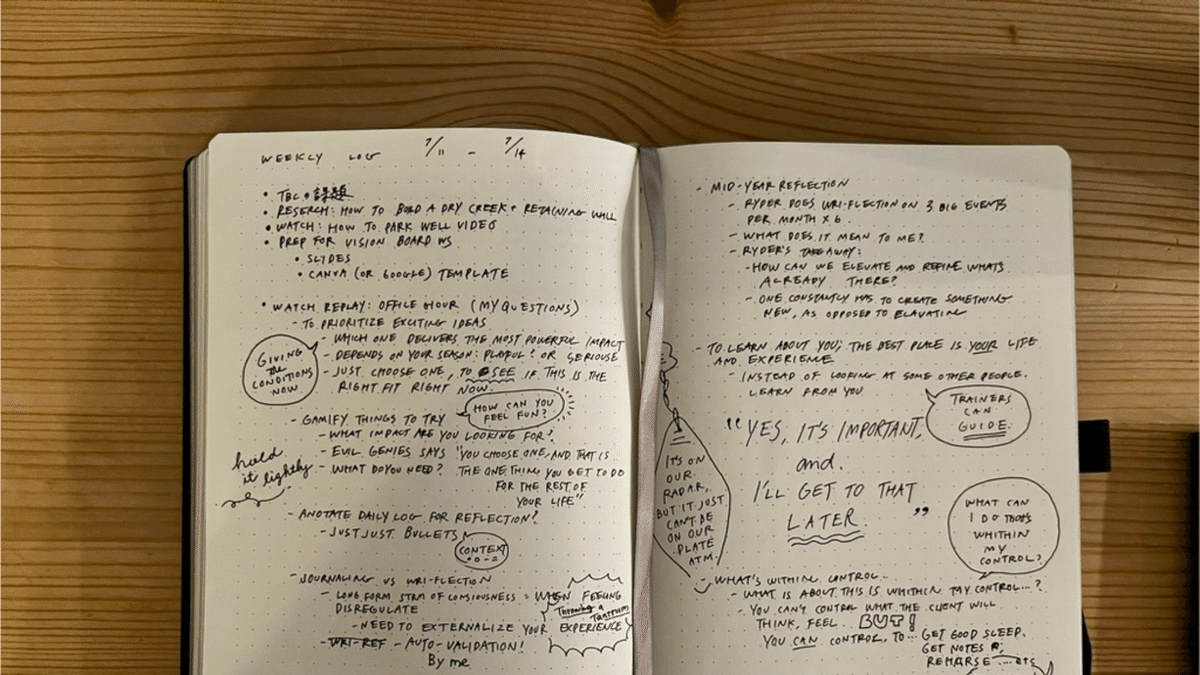 WEEKLY LOG 7/11 - 7/14
• TBC • 課題
• RESERCH: HOW TO BUILD A DRY CREEK + RETAINING WALL
• WATCH: HOW TO PARK WELL VIDEO
• PREP FOR VISION BOARD WS
• SLIDES
• CANVA (OR GOOGLE) TEMPLATE
• WATCH REPLAY: OFFICE HOUR (MY QUESTIONS)
- TO PRIORITIZE EXCITING IDEAS
- WHICH ONE DELIVERS THE MOST POWERFUL IMPACT
- DEPENDS ON YOUR SEASON: PLAYFUL? OR SERIOUSE
- JUST CHOOSE ONE, TO SEE IF THIS IS THE
RIGHT FIT RIGHT NOW.
GIVING
the
CONDITIONS
NOW
- GAMIFY THINGS TO TRY
HOW CAN YOU
FEEL FUN?
- WHAT IMPACT ARE YOU LOOKING FOR?
- EVIL GENIES SAYS "YOU CHOOSE ONE, AND THAT IS
- WHAT DO YOU NEED? THE ONE THING YOU GET TO DO
FOR THE REST OF
YOUR LIFE"
hold
it lightly
- ANOTATE DAILY LOG FOR REFLECTION?
- JUST JUST BULLETS
CONTEXT
- JOURNALING VS WRI-FLECTION
- LONG FORM STRM OF CONSIOUSNESS = WHEN FEELING
DISREGULATE
Throwing a
Tantrum
- NEED TO EXTERNALIZE YOUR EXPERIENCE
- WRI-REF - AUTO-VALIDATION!
By me
- MID-YEAR REFLECTION
- RYDER DOES WRI-FLECTION ON 3 BIG EVENTS
PER MONTH X 6.
- WHAT DOES IT MEAN TO ME?
- RYDER'S TAKEAWAY:
- HOW CAN WE ELEVATE AND REFINE WHAT'S
ALREADY THERE?
- ONE CONSTANTLY HAS TO CREATE SOMETHING
NEW, AS OPPOSED TO ELAVATING
- TO LEARN ABOUT YOU; THE BEST PLACE IS YOUR LIFE
AND EXPERIENCE
- INSTEAD OF LOOKING AT SOME OTHER PEOPLE.
LEARN FROM YOU
TRAINERS
CAN
GUIDE.
"YES, IT'S IMPORTANT,
and.
I'LL GET TO THAT
LATER. "
IT'S ON
OUR
RADAR,
BUT IT JUST
CAN'T BE
ON OUR
PLATE
ATM.
WHAT CAN
I DO THAT'S
WHITHIN
MY
CONTROL?
- WHAT'S WITHIN CONTROL...
- WHAT IS ABOUT THIS IS WHITHIN MY CONTROL...?
- YOU CAN'T CONTROL WHAT THE CLIENT WILL
THINK, FEEL.. BUT!
YOU CAN CONTROL, TO... GET GOOD SLEEP.
GET NOTES
REHARSE ... etc